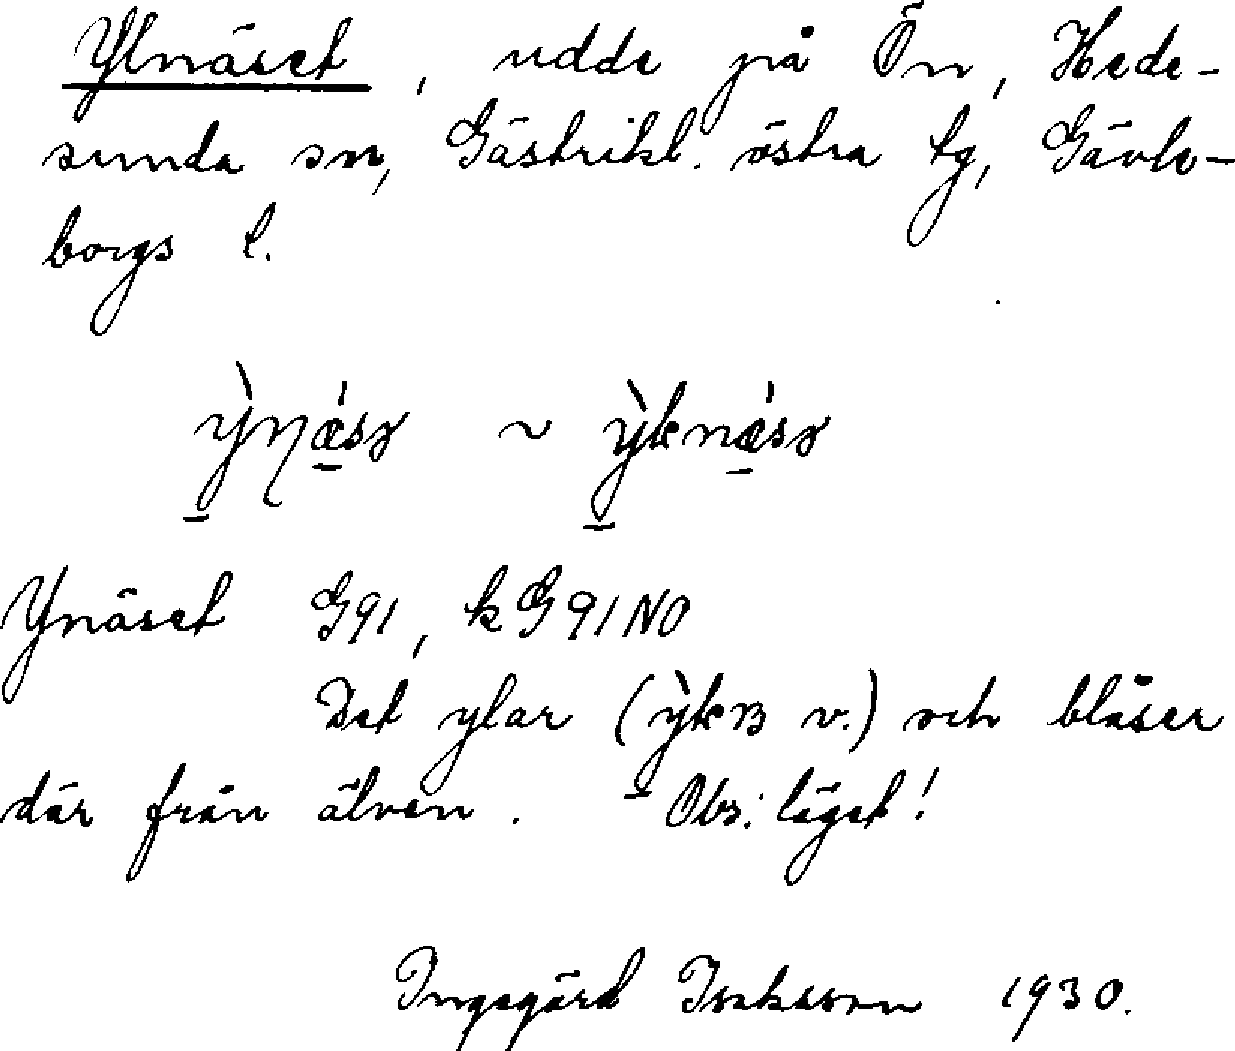 Ylnäset, udde på Ön, Hede-
sunda sn, Gästrikl. östra tg, Gävle-
borgs l.
Ynäset G91, k G91NO
Det ylar ( v.) och blåser
där från älven. Obs. läget!
Ingegärd Isaksson 1930.